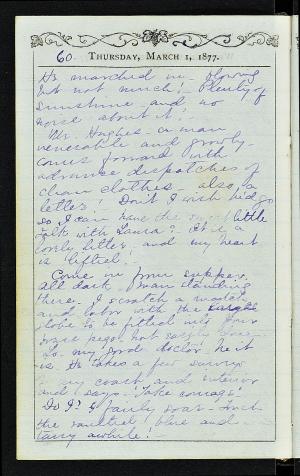 60. THURSDAY, MARCH 1, 1877.
He marched in - blowing
but not much! - Plenty of
sunshine - and no
noise about it! -
Mr. Hughes - a man
venerable and growly -
comes forward with
advance dispatches of
clean clothes - also, a
letter! Don't I wish
so I can have the little
talk with Laura? It is a
lovely letter - and my heart
is lifted!
Come in from supper.
All dark - man standing
there. I scratch a match
and labor with the
globe to be fitted into four
pegs, not easily done -
Lo, my good doctor, he it
is. He takes a few
my couch and exterior
and says "Take courage."
Do I? I fairly soar - touch
the blue and
tarry awhile! -